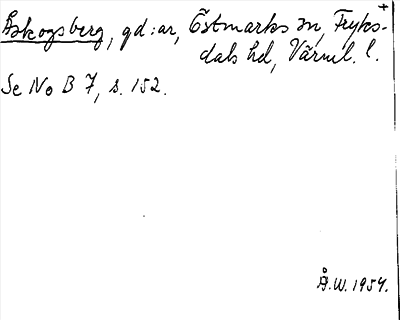 Åskogsberg, gd:ar, Östmarks sn, Fryks-
dals hd, Värml. l.
Se No B 7, s. 152.
Å.W. 1954.